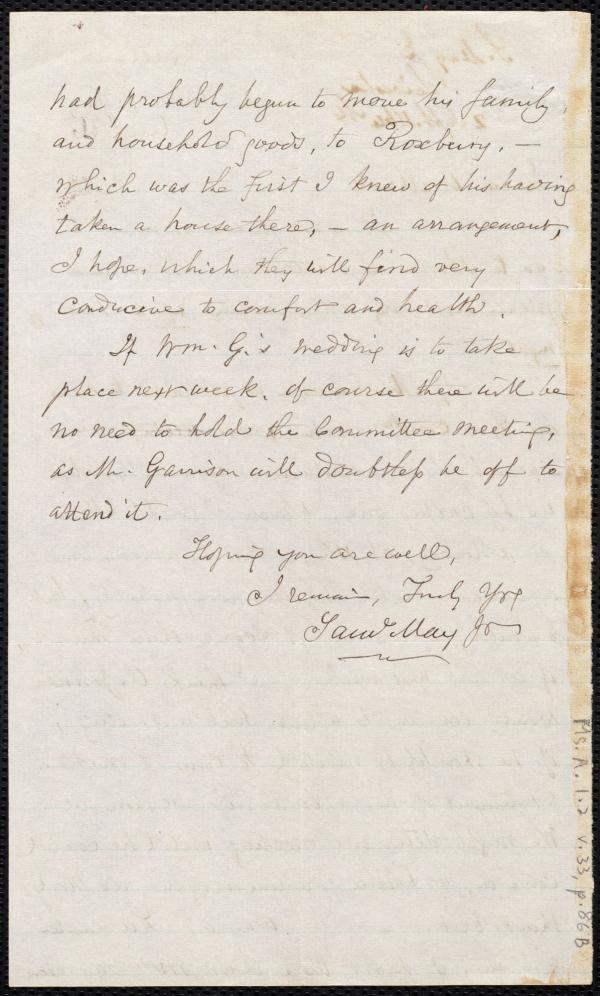 had probably begun to move his family,
and household goods, to Roxbury, —
which was the first I knew of his having
taken a house there, — an arrangement,
I hope, which they will find very
conducive to comfort and health.
If Wm. G.'s wedding is to take
place next week, of course there will be
no need to hold the Committee meeting,
as Mr. Garrison will doubtless be off to
attend it.
Hoping you are well,
I remain, Truly Yrs
Saml May Jr
Ms. A. 1.2 v. 33, p. 86B